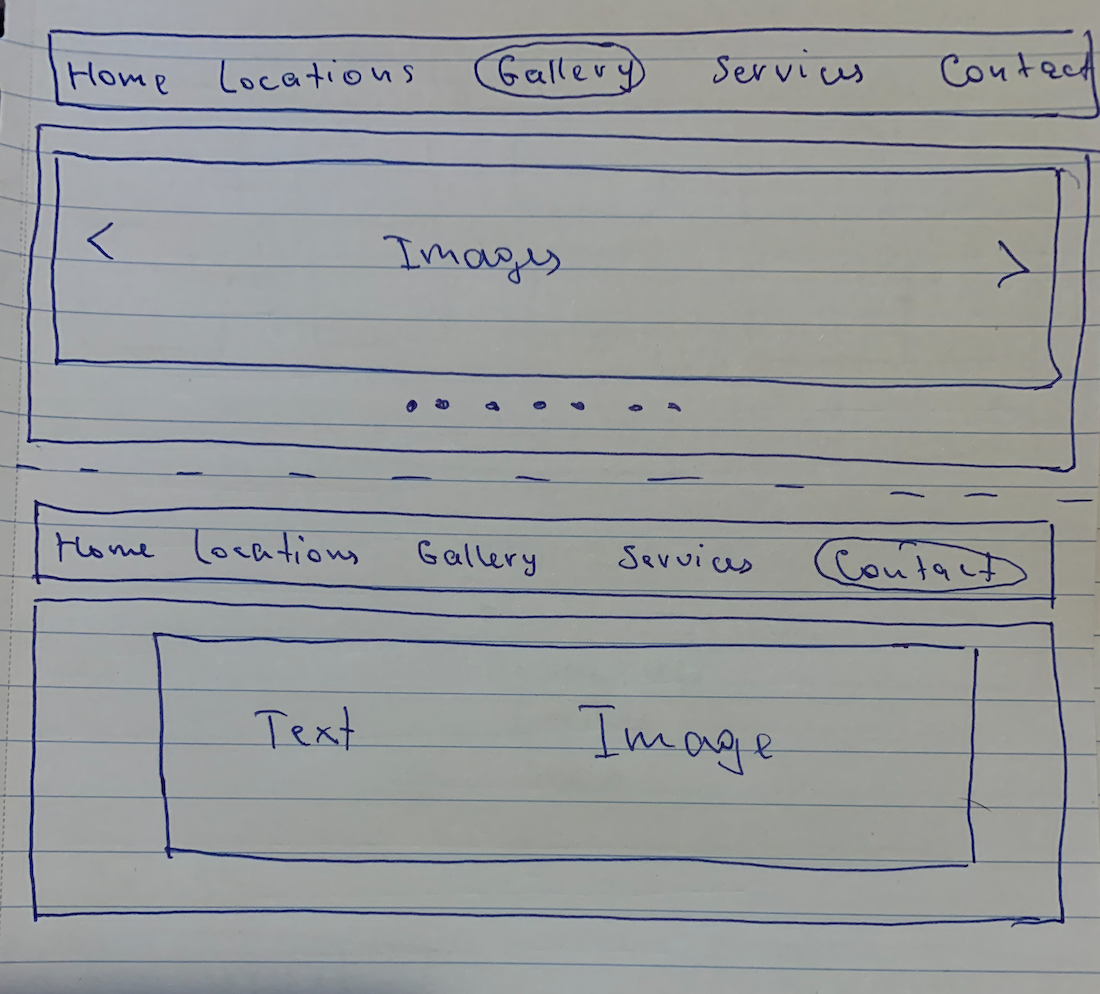 Home Locations Gallery Services Contact
< Images >
Home Locations Gallery Services Contact
Text Image